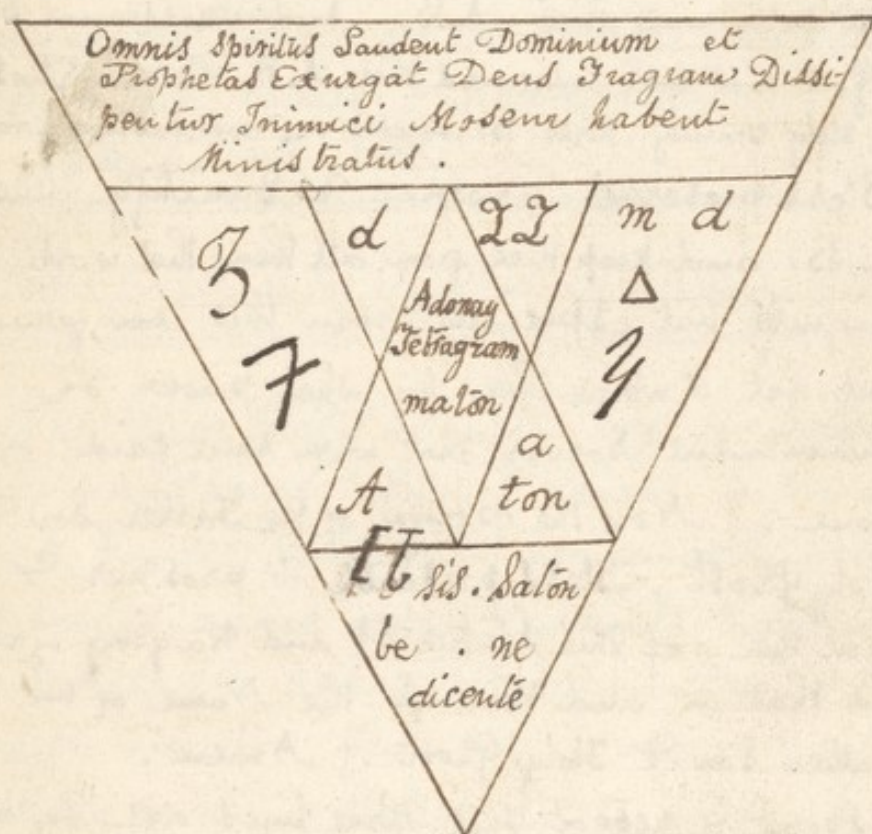 Omnis Spiritus Laudent Dominium et
Prophetas Exurgat Deus Fragram Dissi-
pentur Inimici Mosem habent
Ministratus.
3 d ZZ m d
Δ
Adonay
Tetragram
maton
7 y
a
A ton
sis. Saton
be . ne
dicentē